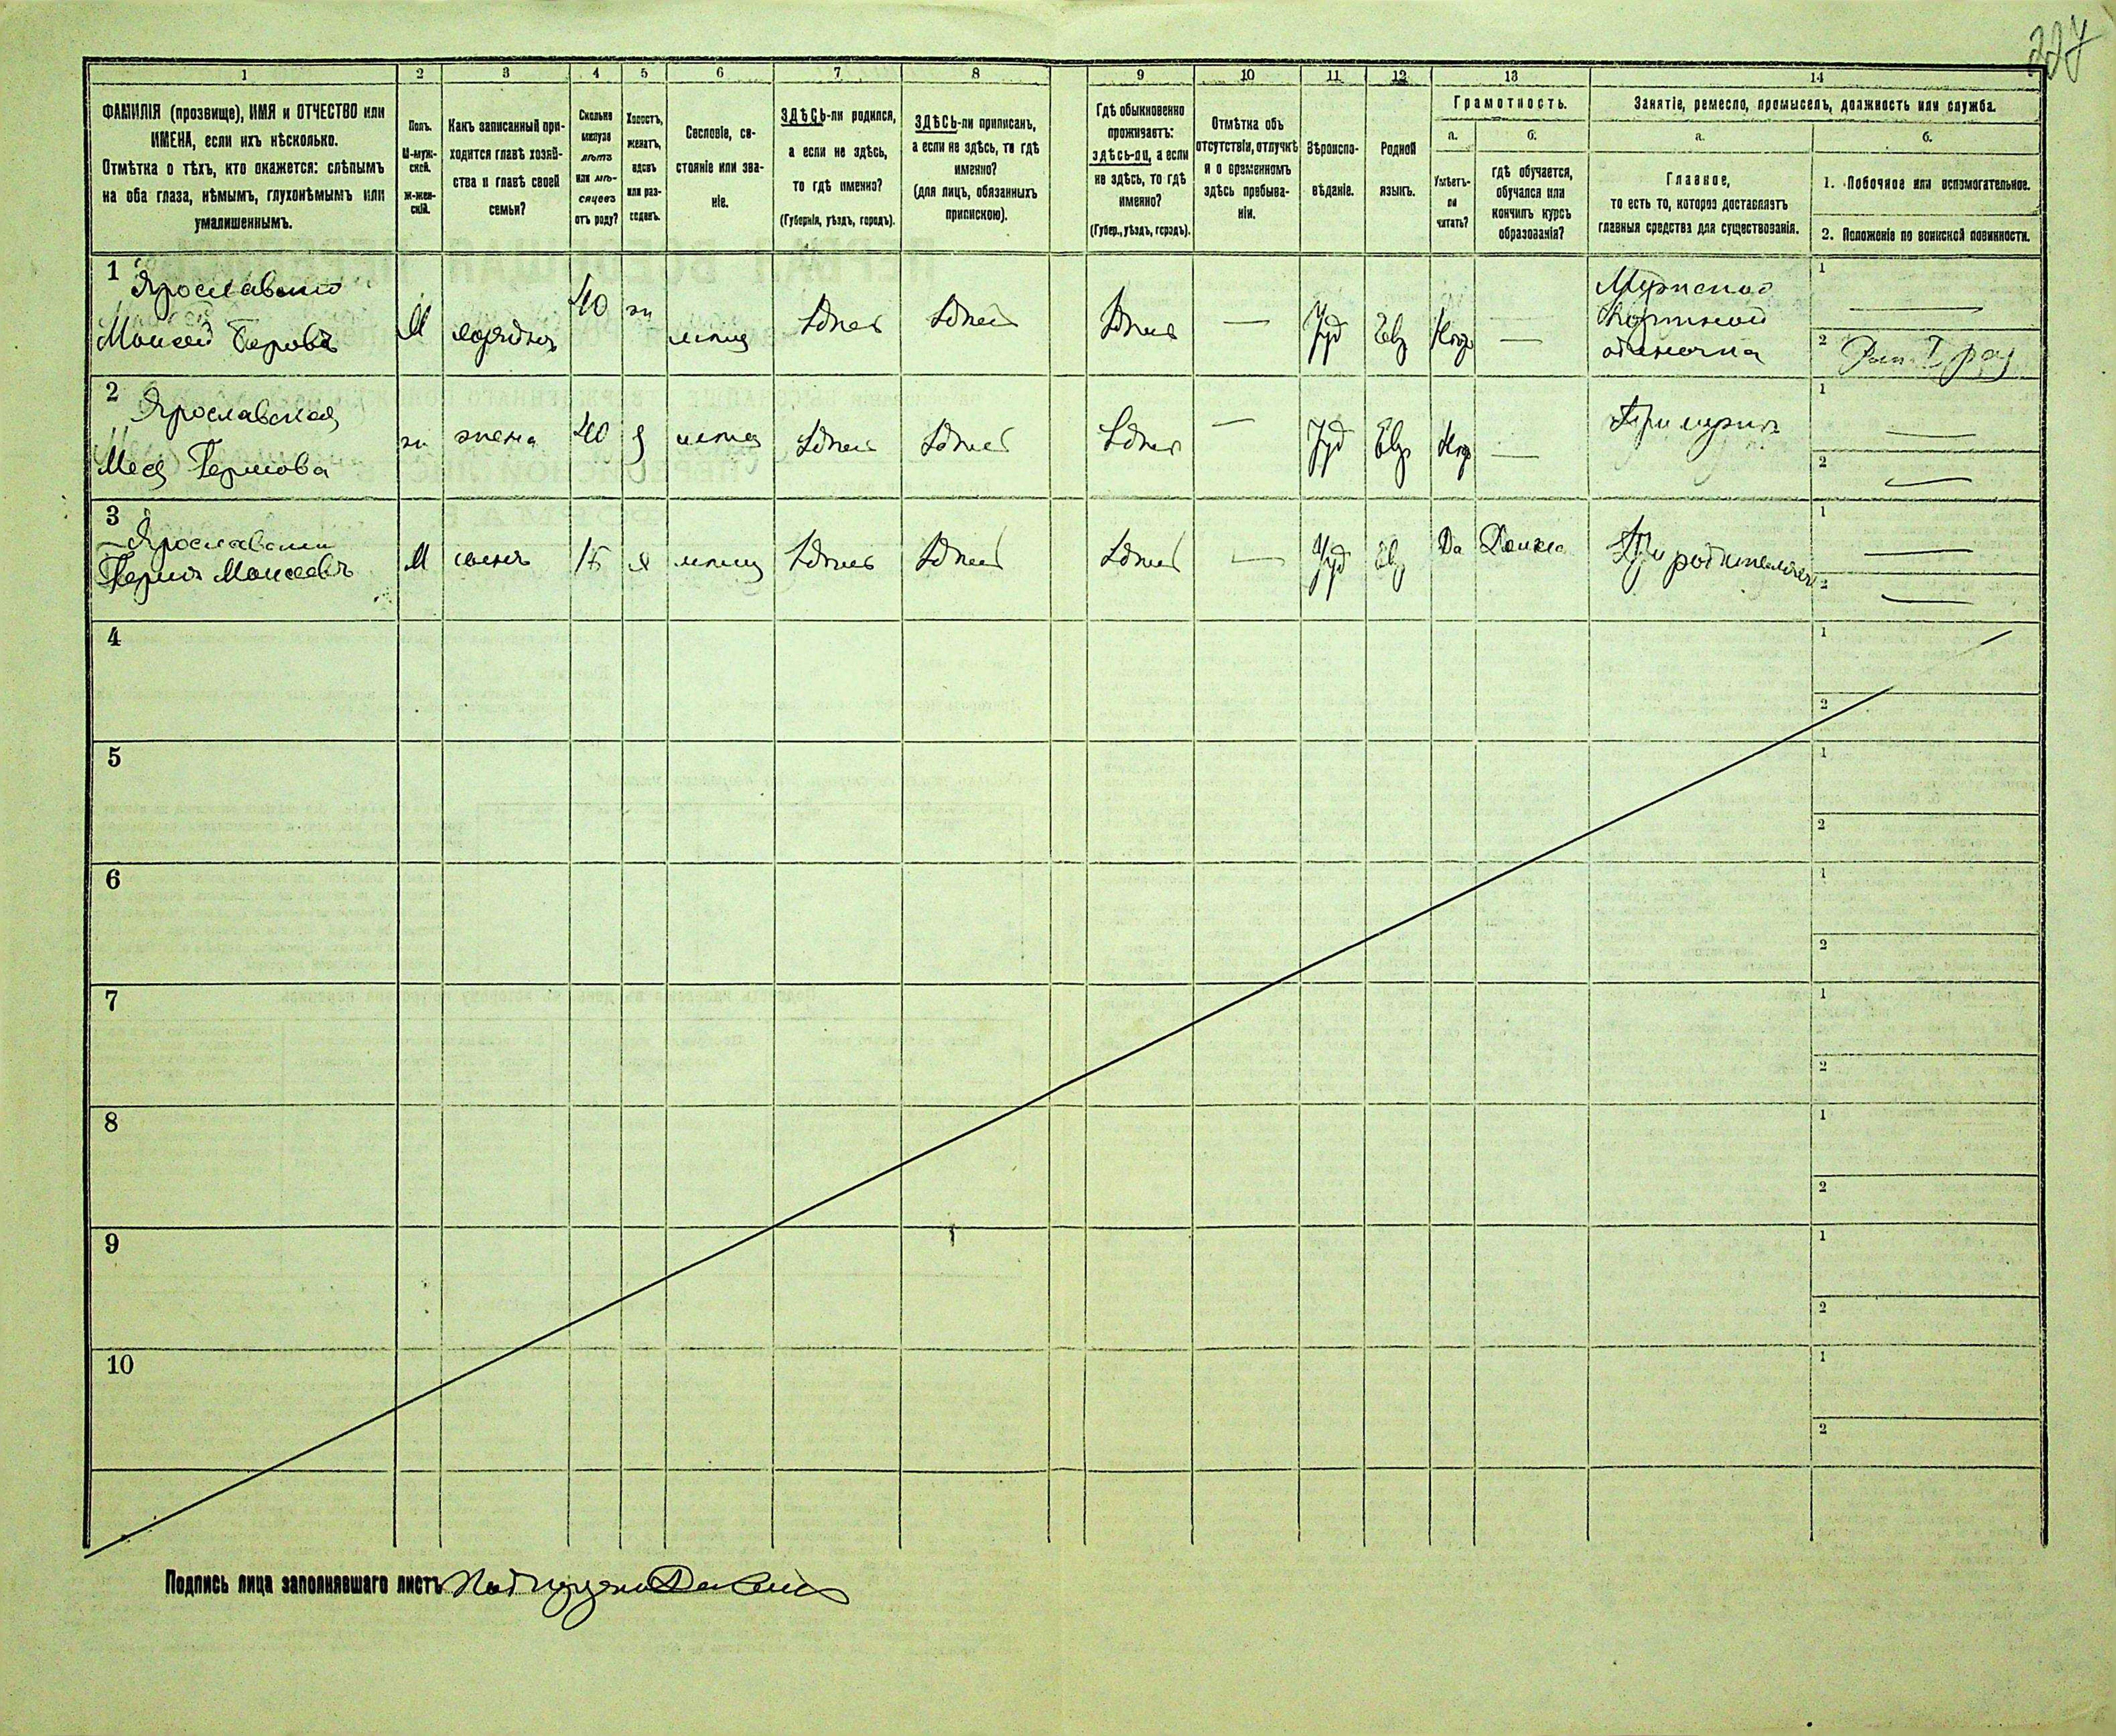 227
1
2
3
4
5
6
7
8
9
10
11
12
13
14
ФАМИЛІЯ (прозвище), ИМЯ и ОТЧЕСТВО или
ИМЕНА, если ихъ нѣсколько.
Отмѣтка о тѣхъ, кто окажется: слѣпымъ
на оба глаза, нѣмымъ, глухонѣмымъ или
умалишеннымъ.
Полъ.
М-муж-
ской.
Ж-жен-
скій.
Какъ записанный при-
ходится главѣ хозяй-
ства и главѣ своей
семьи?
Сколько
минуло
лѣтъ
или мѣ-
сяцевъ
отъ роду?
Холостъ,
женатъ,
вдовъ
или раз-
веденъ.
Сословіе, со-
стояніе или зва-
ніе.
ЗДѢСЬ-ли родился,
а если не здѣсь,
то гдѣ именно?
(Губернія, уѣздъ, городъ).
ЗДѢСЬ-ли приписанъ,
а если не здѣсь, то гдѣ
именно?
(для лицъ, обязанныхъ
припискою).
Гдѣ обыкновенно
проживаетъ:
здѣсь-ли, а если
не здѣсь, то гдѣ
именно?
(Губер., уѣздъ, городъ).
Отмѣтка объ
отсутствіи, отлучкѣ
и о временномъ
здѣсь пребыва-
ніи.
Вѣроиспо-
вѣданіе.
Родной
языкъ.
Грамотность.
а.
Умѣетъ-
ли
читать?
б.
гдѣ обучается,
обучался или
кончилъ курсъ
образованія?
Занятіе, ремесло, промыселъ, должность или служба.
а.
Главное,
то есть то, которое доставляетъ
главныя средства для существованія.
б.
1. Побочное или вспомогательное.
2. Положеніе по воинской повинности.
1
Ярославский
Моисей Беровъ
М
40
ж
мѣщ
Здѣсь
Здѣсь
Здѣсь
—
Іуд
Евр
—
Портной
одиночка
1 —
2
2
Ярославская
Гершова
ж
жена
40
мѣщ
Здѣсь
Здѣсь
Здѣсь
—
Іуд
Евр
—
При мужѣ
1 —
2 —
3
Ярославский
Гершъ Моисеевъ
М
сынъ
15
х
мѣщ
Здѣсь
Здѣсь
Здѣсь
—
Іуд
Евр
Да
При родителяхъ
1 —
2 —
4
1
2
5
1
2
6
1
2
7
1
2
8
1
2
9
1
2
10
1
2
Подпись лица заполнявшаго листъ